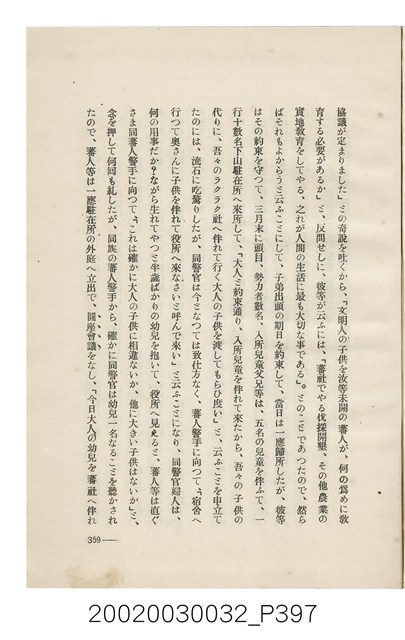 協議が定まりました」との奇說を吐くから、「文明人の子供を汝等未開の蕃人が、何の爲めに敎
育する必要があるか」と、反問せしに、彼等が云ふには、「蕃社でやる伐採開墾、その他農業の
實地敎育をしてやる、之れが人間の生活に最も大切な事である」。とのことであつたので、然ら
ばそれもよからうと云ふことにして、子弟出頭の期日を約束して、當日は一應歸所したが、彼等
はその約束を守つて、三月末に頭目、勢力者數名、入所兒童父兄等は、五名の兒童を伴ふて、一
行十數名下山駐在所へ來所して、「大人と約束通り、入所兒童を伴れて來たから、吾々の子供の
代りに、吾々のラクラク社へ伴れて行く大人の子供を渡してもらひ度い」と、云ふことを申立て
たのには、流石に吃驚りしたが、同警官は今となつては致仕方なく、蕃人警手に向つて、「宿舍へ
行つて奧さんに子供を伴れて役所へ來なさいと呼んで來い」と云ふことになり、同警官婦人は、
何の用事だか?ながら生れてやつと半歲ばかりの幼兒を抱いて、役所へ見えると、蕃人等は直ぐ
さま同蕃人警手に向つて、「これは確かに大人の子供に相違ないか、他に大きい子供はないか」と、
念を押して何回も糺したが、同族の蕃人警手から、確かに同警官は幼兒一名なることを聽かされ
たので、蕃人等は一應駐在所の外庭へ立出で、圓座會議をなし、「今日大人の幼兒を蕃社へ伴れ
359
20020030032_P397